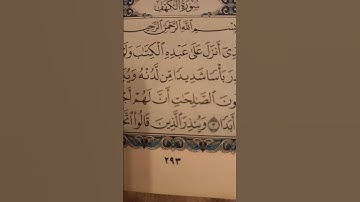 سُورَةُ الْكَهْفِ
بِسْمِ اللَّهِ الرَّحْمَٰنِ الرَّحِيمِ
أَنزَلَ عَلَىٰ عَبْدِهِ الْكِتَٰبَ وَلَمْ
بَأْسًا شَدِيدًا مِّن لَّدُنْهُ
الصَّٰلِحَٰتِ أَنَّ لَهُمْ
أَبَدًا ٣ وَيُنذِرَ الَّذِينَ قَالُوا
٢٩٣